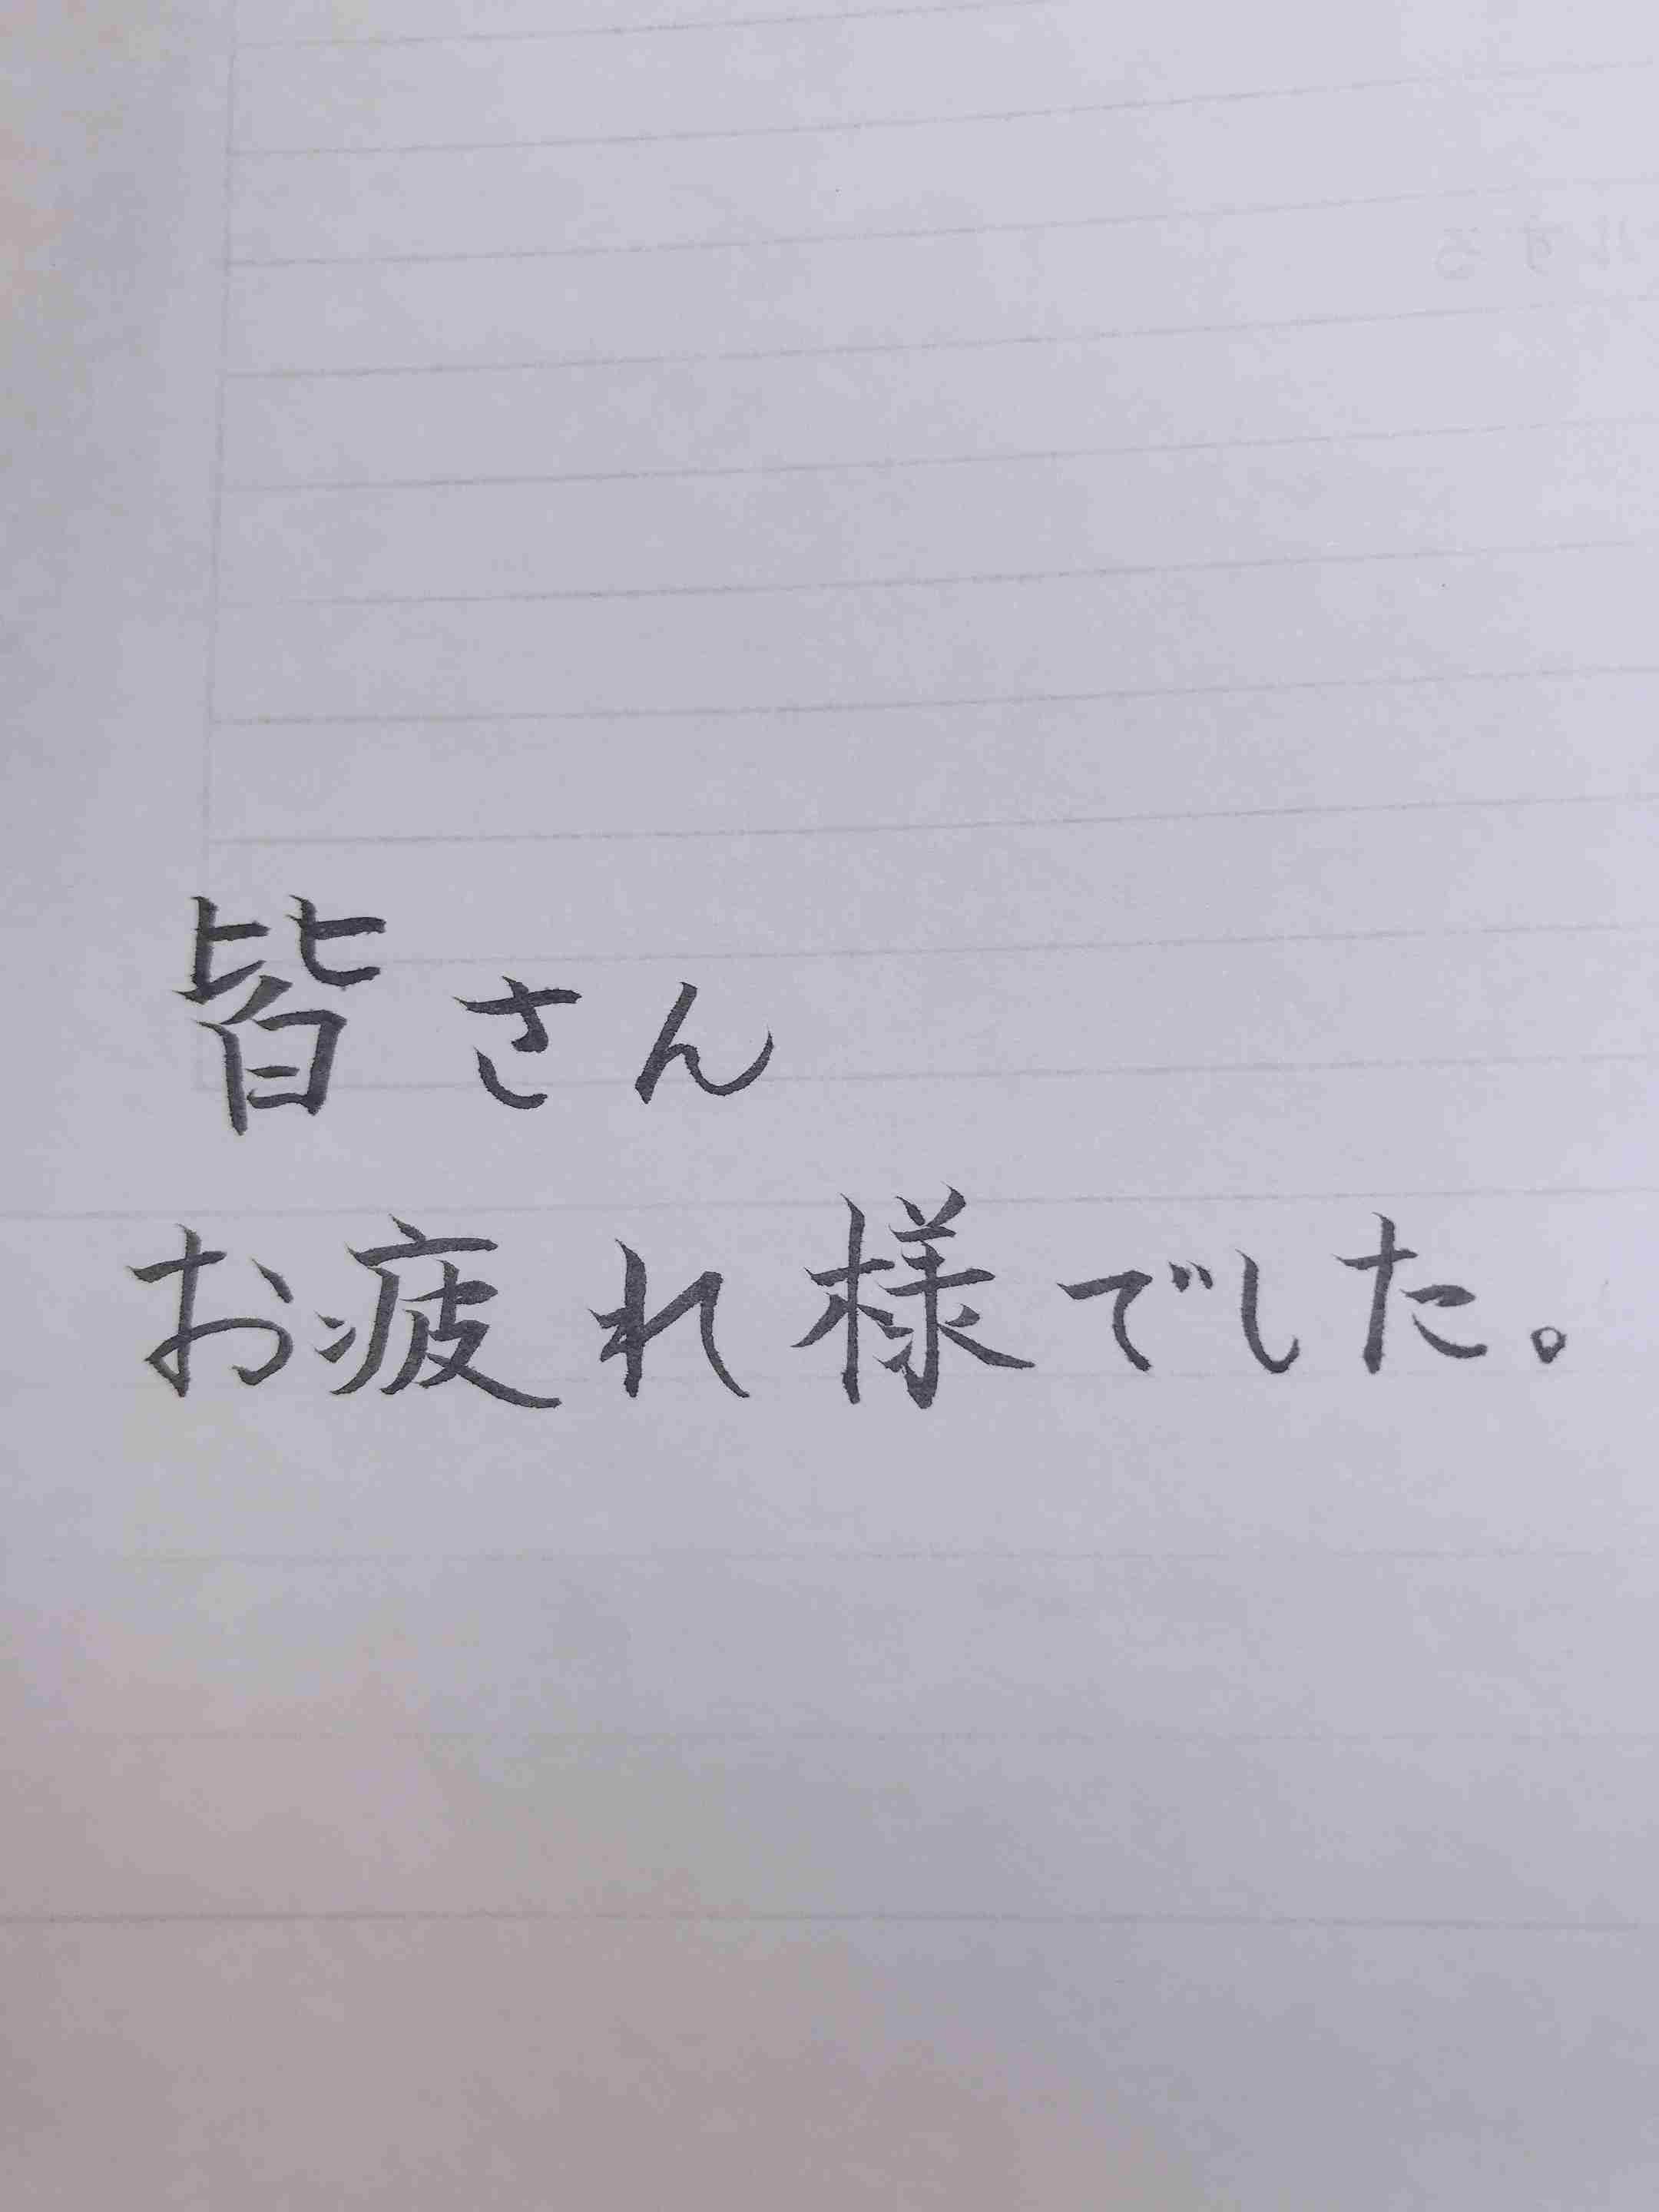 皆さん
お疲れ様でした。